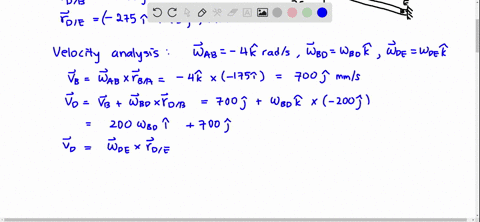 r⃗_D/E = (-275 î
Velocity analysis : ω⃗_AB = -4k̂ rad/s , ω⃗_BD = ω_BD k̂ , ω⃗_DE = ω_DE k̂
v⃗_B = ω⃗_AB × r⃗_B/A = -4k̂ × (-175î) = 700 ĵ mm/s
v⃗_D = v⃗_B + ω⃗_BD × r⃗_D/B = 700ĵ + ω_BD k̂ × (-200ĵ)
= 200 ω_BD î + 700ĵ
v⃗_D = ω⃗_DE × r⃗_D/E